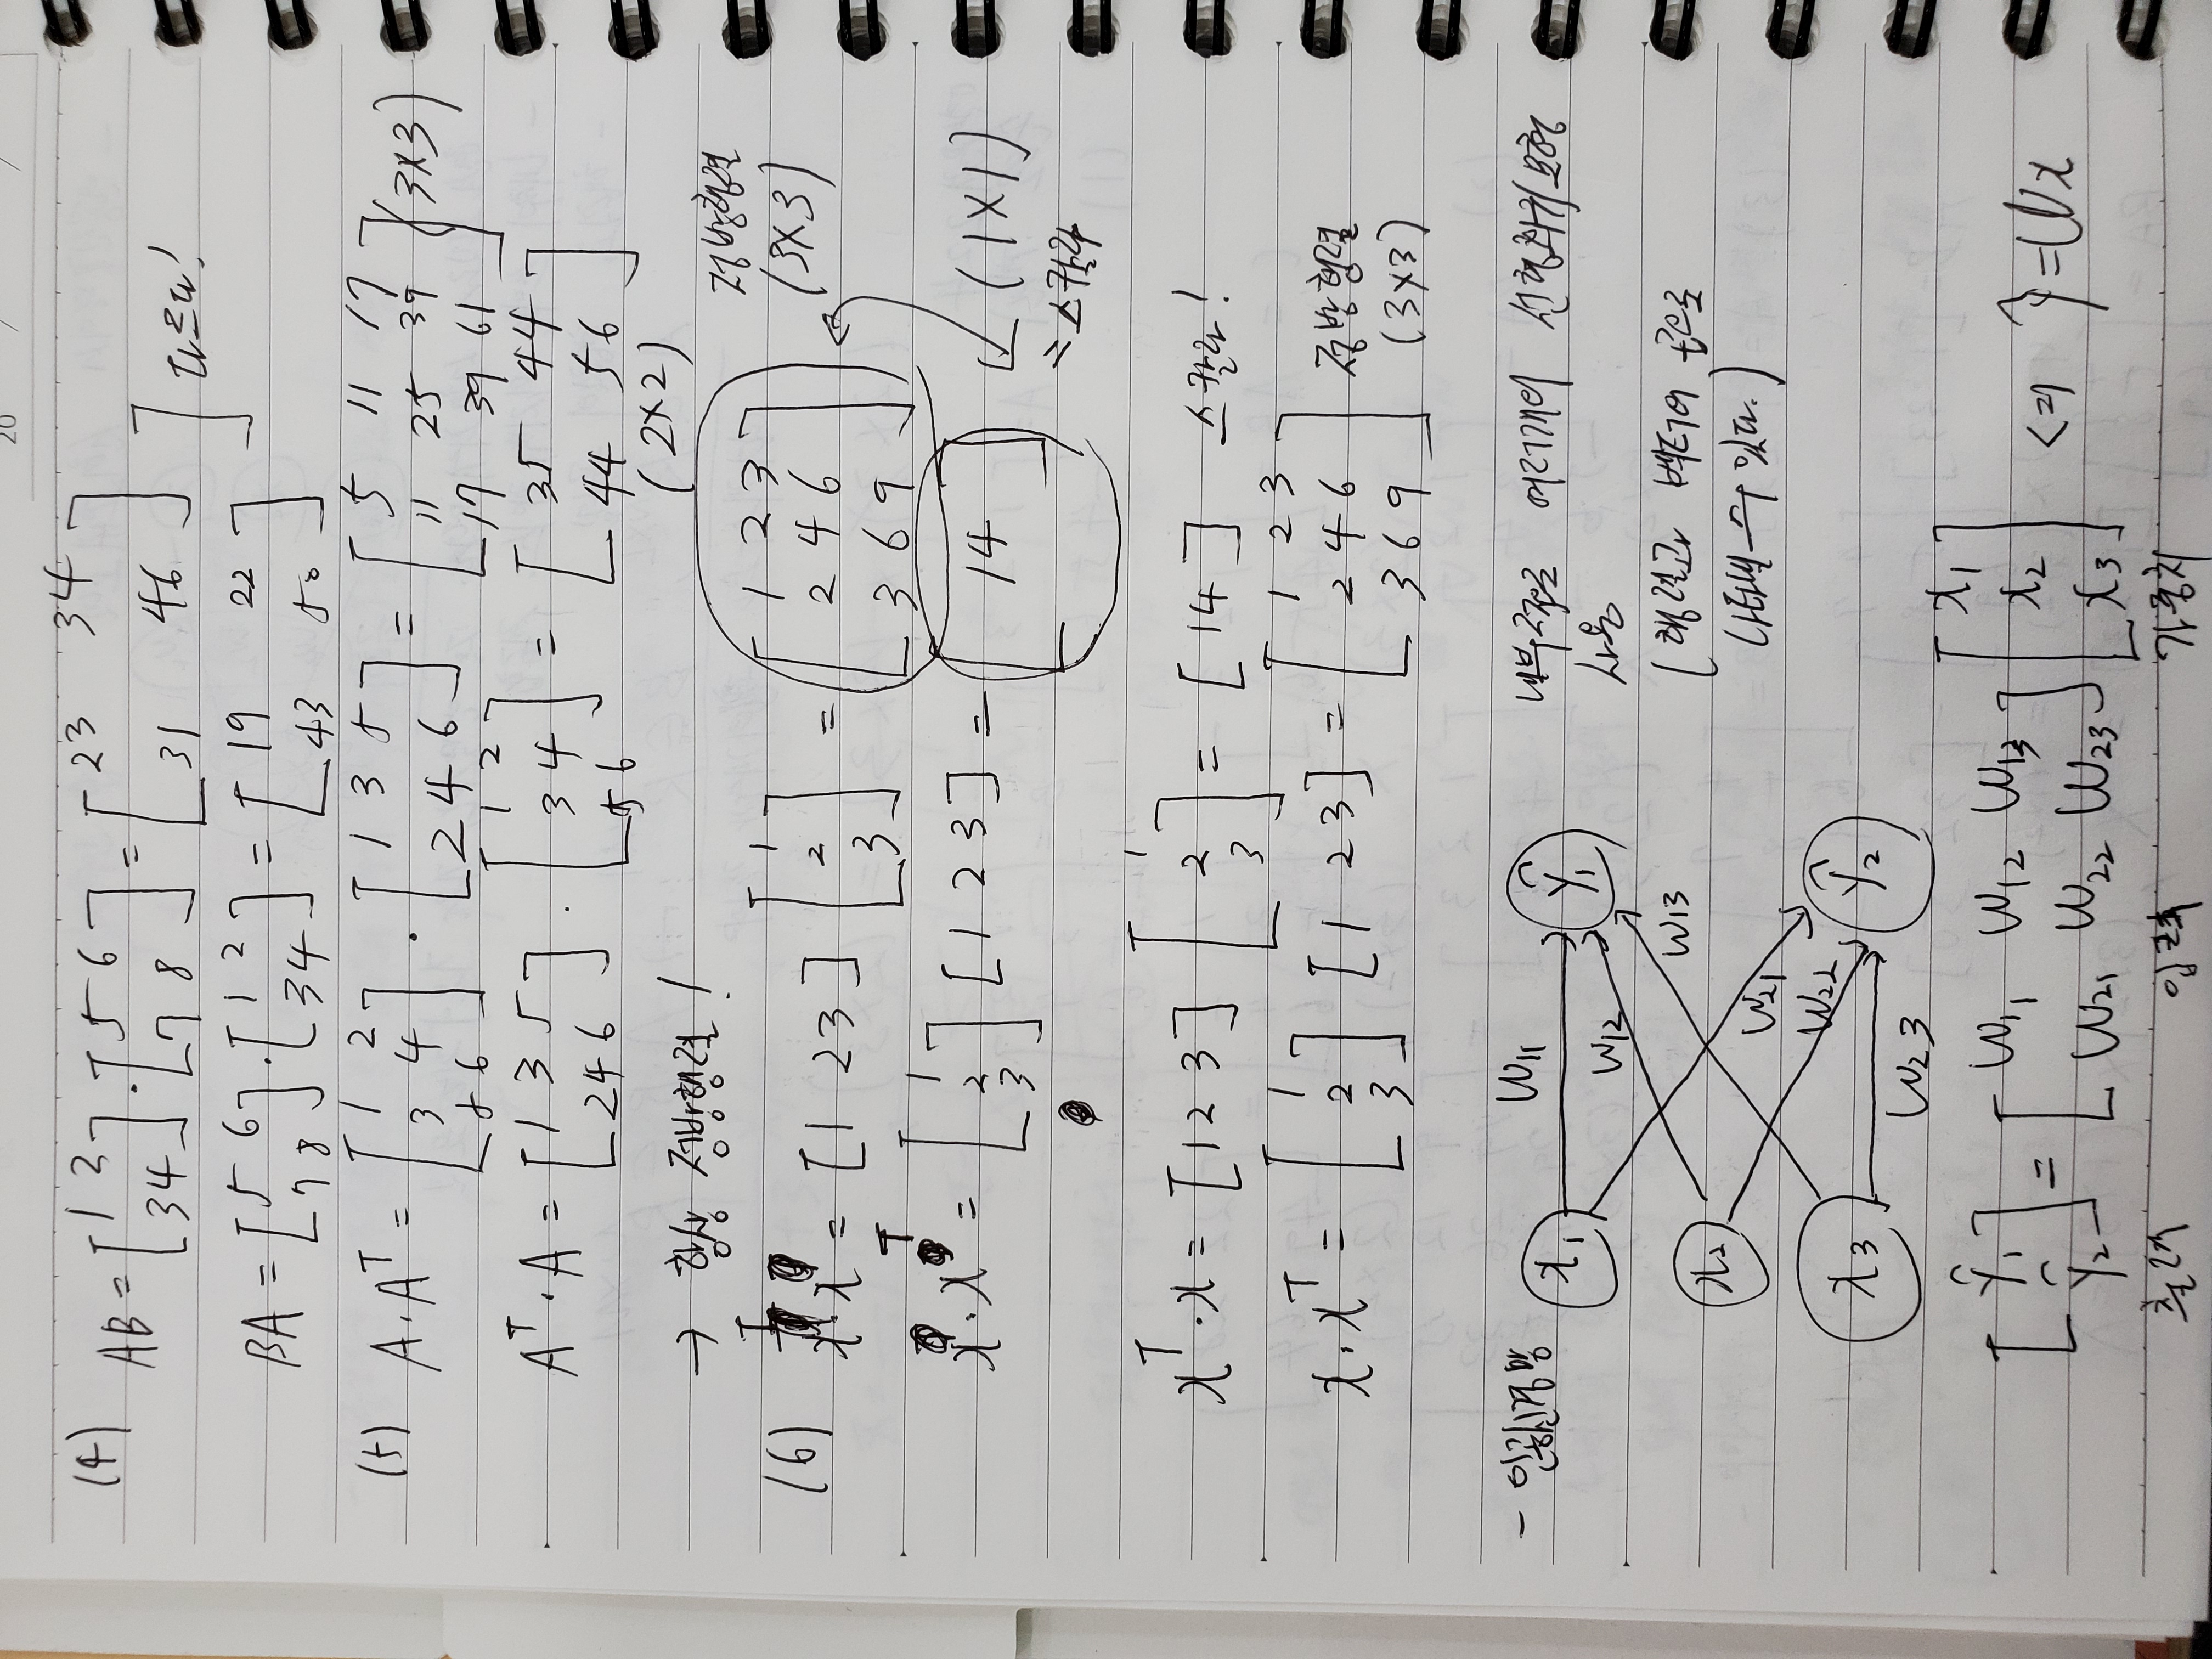 20 / /
(4) AB = [1 2 34] · [5 6 7 8] = [23 34 31 46]
다르다!
BA = [5 6 7 8] · [1 2 34] = [19 22 43 50]
(5) A·Aᵀ = [1 2 3 4 5 6] · [1 3 5 2 4 6] = [5 11 17 11 25 39 17 39 61] (3×3)
Aᵀ·A = [1 3 5 2 4 6] · [1 2 3 4 5 6] = [35 44 44 56]
(2×2)
→ 항상 정방행렬!
정방행렬
(3×3)
(6) xᵀ·x = [1 2 3] [1 2 3] = [1 2 3 2 4 6 3 6 9]
x·xᵀ = [1 2 3] [1 2 3] = [14] (1×1)
= 스칼라
xᵀ·x = [1 2 3] [1 2 3] = [14] 스칼라!
x·xᵀ = [1 2 3] [1 2 3] = [1 2 3 2 4 6 3 6 9] 정방행렬
(3×3)
- 인공신경망
x₁ W₁₁ ŷ₁
W₁₂
x₂ W₁₃
W₂₁
W₂₂
x₃ W₂₃ ŷ₂
내부적으로 여러개의 선형회귀모형
사용
(행렬과 벡터의 곱으로
나타낼 수 있다.)
[ŷ₁ ŷ₂] = [W₁₁ W₁₂ W₁₃ W₂₁ W₂₂ W₂₃] [x₁ x₂ x₃] <=> ŷ=Wx
출력 입력 가중치